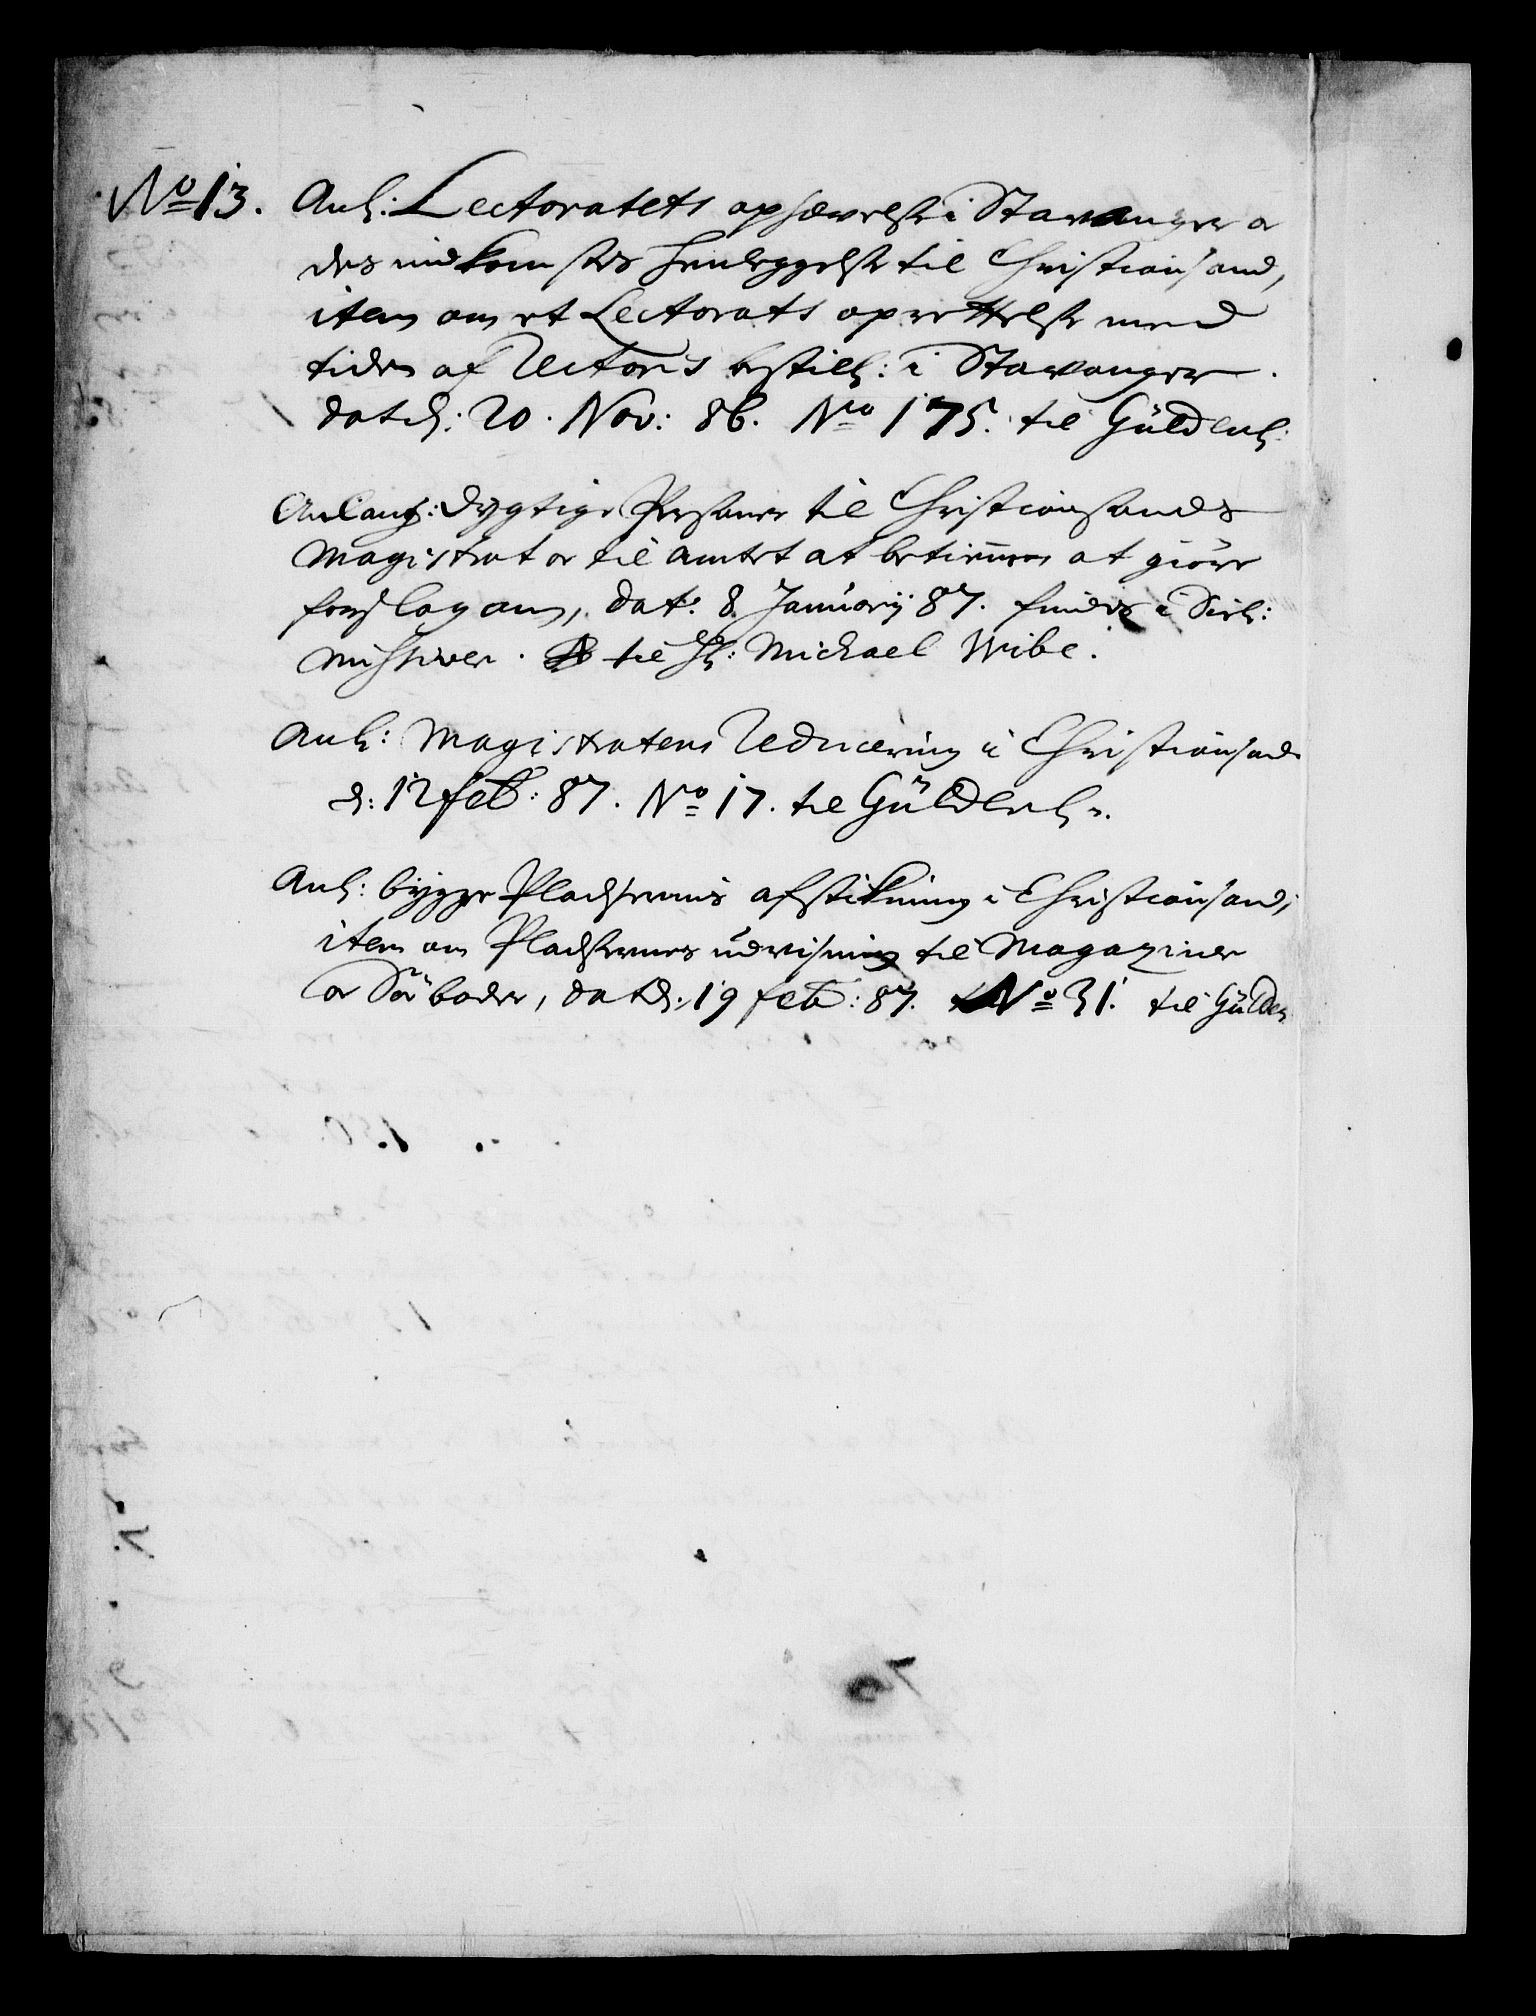 No 13. Anl: Lectoratets ophævelse i Stavanger o
des indkomstes henleggelse til Christiansand,
item om et Lectorats oprettelse med
tiden af Rectoris bestill: i Stavanger.
dat d: 20. Nov: 86. No 175. til Güldenl:
Anlang: dygtige Persohner til Christiansands
Magistrat o til Amtet at betienne at giöre
forslag om, dat: 8. January 87. findis i Siel:
Missiver. til H: Michael Wibe.
Anl: Magistratens Reducering i Christiansand
d: 12 feb: 87. No 17. til Güldenl.
Anl: bygge Pladsernis afstikning i Christiansand,
item om Pladsernes udvisning til Magaziner
o Söeboder, dat d. 19 feb: 87. No 31. til Gülden